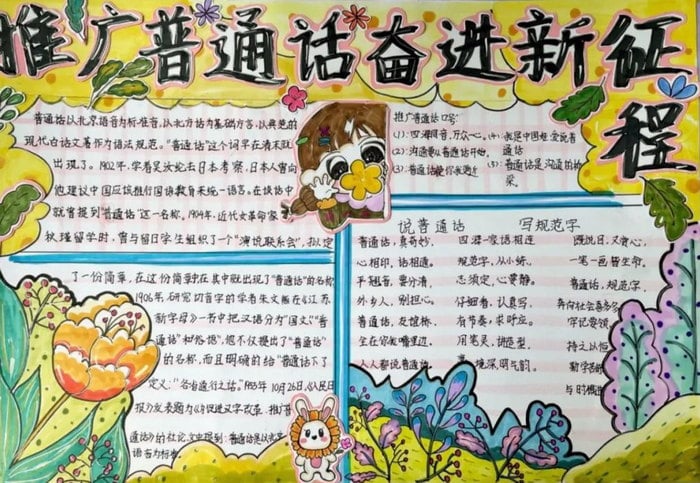 推广普通话奋进新征程
普通话以北京语音为标准音，以北方话为基础方言，以典范的
现代白话文著作为语法规范。"普通话"这个词早在清末就
出现了。1902年，学者吴汝纶去日本考察，日本人曾向
他建议中国应该推行国语教育来统一语言。在谈话中
就曾提到"普通话"这一名称。1904年，近代女革命家
秋瑾留学时，曾与留日学生组织了一个"演说联系会"，拟定
了一份简章，在这份简章中就出现了"普通话"的名称
1906年，研究切音字的学者朱文熊在《江苏
新字母》一书中把汉语分为"国文""普
通话"和"俗语"，他不仅提出了"普通话"
的名称，而且明确的给"普通话"下了
定义："各省通行之话。"1955年10月26日，《人民日
报》发表题为《 促进汉字改革、推广
通话》的社论，文中提到：普通话是以北京
语音为标准
推广普通话口号：
(1)：四海同音，万众一心。
(2)：沟通 普通话开始，
(3)：普通话 你我更近
(4)：我是中国娃，爱说普
通话
(5)：普通话是沟通的桥
梁。
说普通话 写规范字
普通话，真奇妙，
心相印，话相连。
手翘音，要分清，
外乡人，别担心。
普通话，友谊桥，
生在你 嘴里边，
人人都说普通话
四海一家话相连
规范字，从小练，
志须定，心要静。
仔细看，认真写，
有节奏，求呼应。
用笔灵，讲造型，
境深，明气韵。
既悦目，又赏心，
一笔一画皆生命。
普通话，规范字，
奔向社会喜多
字记要领
持之以恒
新字
与时概